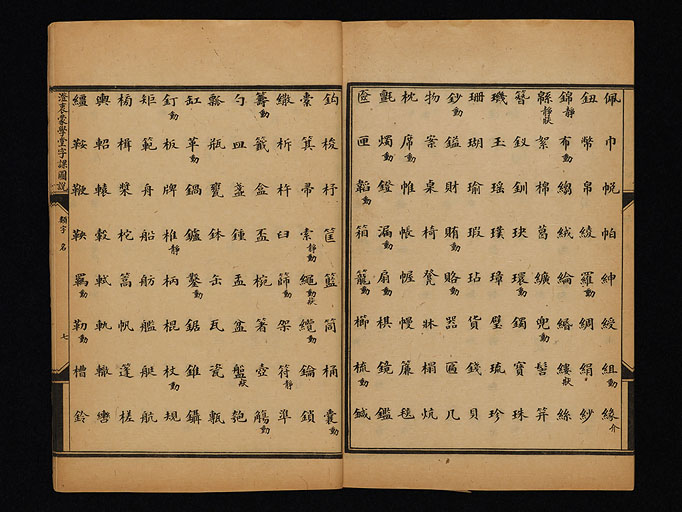 佩巾帨帕紳綬組動緣介
鈕幣帛綾羅動綢絹紗
錦靜布動縐絨綸緡縷狀絲
緜靜狀絮棉葛纊兜動髻笄
簪釵釧玦環動鐲寶珠
璣玉瑤璞璋璧琉珍
珊瑚瑜瑕玷貨錢貝
鈔動鎰財賄動賂動器匾几
物案桌椅凳牀榻炕
枕席動帷帳幄幔簾毯
氈燭動鐙漏動扇動棋鏡鑑
奩匣韜動箱籠動櫛梳動鍼
鈎梭杼筐籃筒桶囊動
橐箕帚索靜動繩動狀纜動鑰鎖
繖析杵臼篩動架符靜準
籌動籤盒盃椀箸壺觴動
勺皿盞鍾盂盆盤狀匏
瓢瓶甕鉢缶瓦瓷甀
缸革動鍋鑪鑿動鋸錐鑷
釘動板牌椎靜柄棍杖動規
矩範舟船舫艦艇航
槅楫槳柁篙帆篷槎
輿軺轅轂軾軌轍轡
韁鞍鞭鞅羈動勒動槽鈴
澄衷蒙學堂字課圖說
類字 名
七